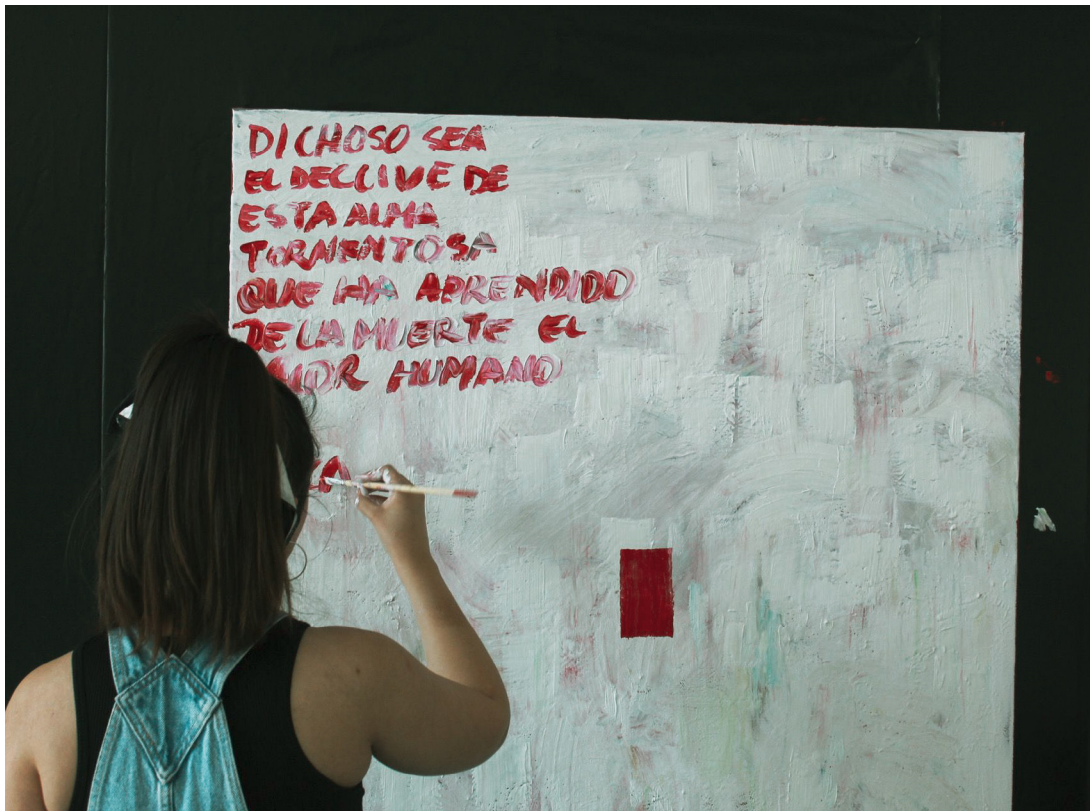 DICHOSO SEA
EL DECLIVE DE
ESTA ALMA
TORMENTOSA
QUE HA APRENDIDO
DE LA MUERTE EL
AMOR HUMANO